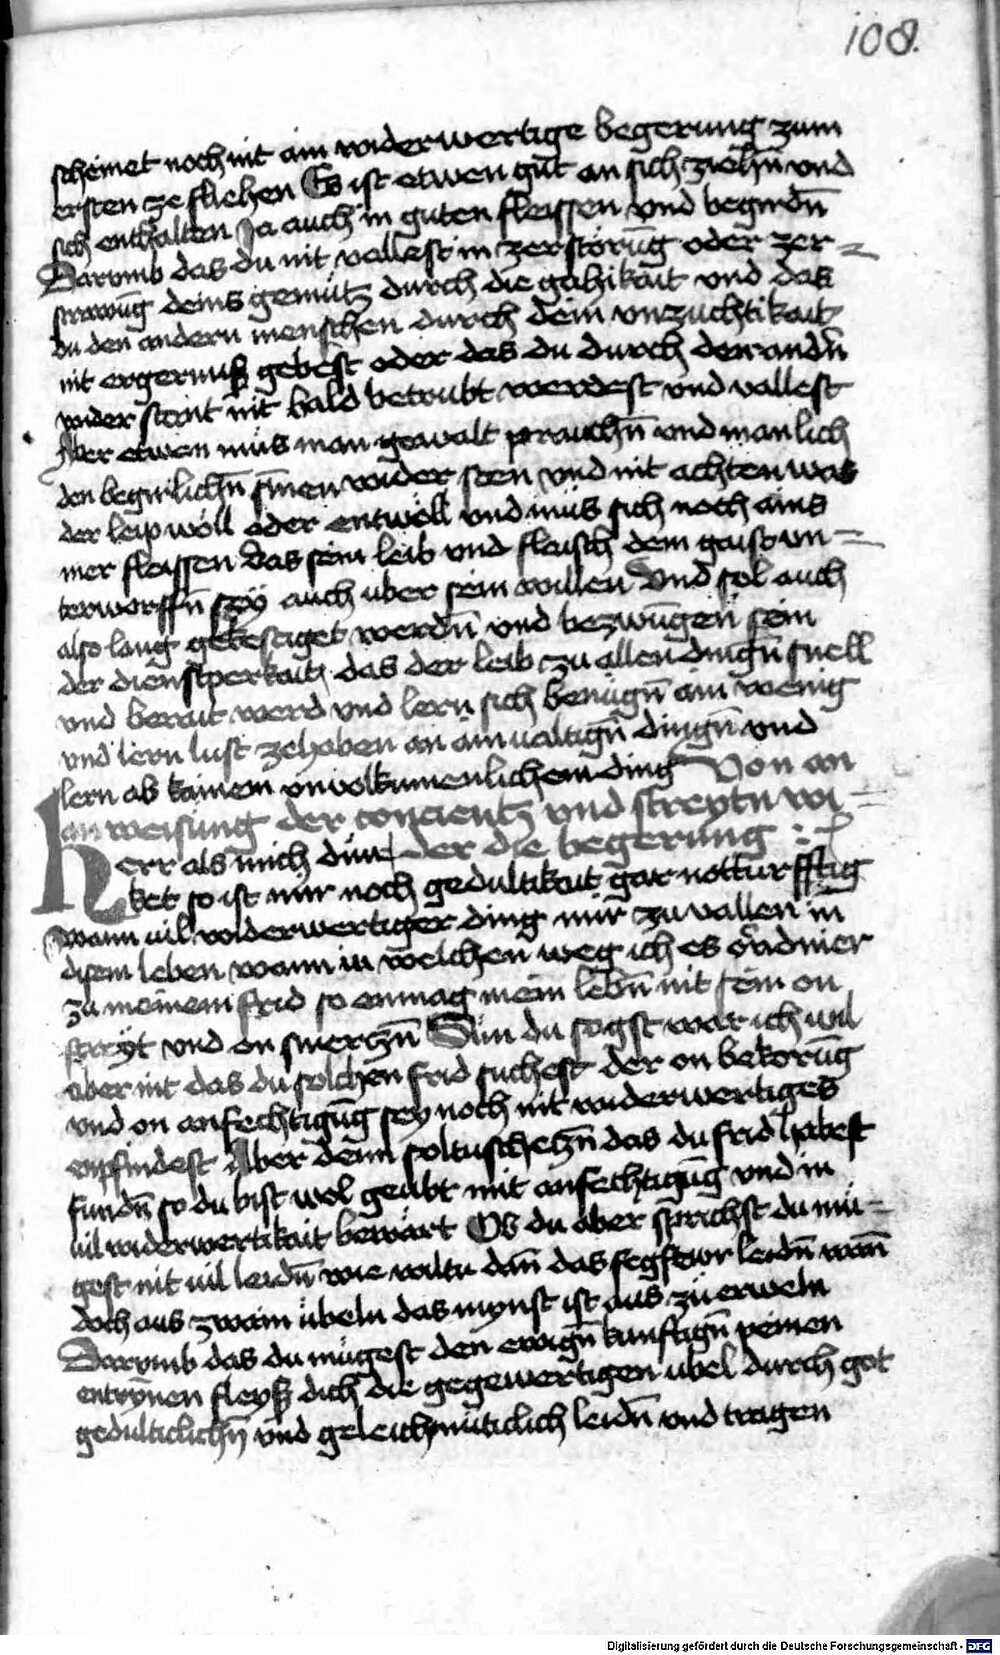 108.
scheinet noch nit ain widerwertige begerung zum
ersten ze fliehen Es ist etwen gut an sich ziehn̄ und
sich enthalten Ja auch in guten fleissen und begirdn̄
Darumb das du nit vallest in zerstörūg oder zer=
strewūg deins gemütz durch die gähikait und das
du den andern menschen durch dein unzuchtikait
nit ergernuß gebest oder das du durch der andn̄
wider streit nit bald betrubt werdest und vallest
Aber etwen mus man gewalt prauchn̄ und manlich
den begirlichn̄ sinnen wider sten und nit achten was
der leip wöll oder entwöll und mus sich noch ains
mer fleissen das sein leib und flaisch dem gaist un=
terworffn̄ sey auch uber sein willen Und sol auch
also lang gekestiget werdn̄ und bezwūgen sein
der dienstperkait das der leib zu allen dingn̄ snell
und berait werd und lern sich benügn̄ ain wenig
und lern lust zehaben an ainualtign̄ dingn̄ und
lern ab kainem unvolkumenlichem ding Von an
anweisung der concientz und streytn wi=
der die begerung
Herr als mich dun
ket so ist mir noch gedultikait gar notturfftig
wann uil widerwertiger ding mir zu vallen in
disem leben wann in welchen weg ich es ordnier
zu meinem frid so enmag mein lebn̄ nit sein on
streyt und on smerczn̄ Sun du sagst war ich wil
aber nit das du solchen frid suchest der on bekorūg
und on anfechtigūg sey noch nit widerwertiges
enpfindest Aber denn soltu scheczn̄ das du frid habest
fundn̄ so du bist wol geübt mit anfechtigūg und in
uil widerwertikait bewärt Ob du aber sprichst du mü=
gest nit uil leidn̄ wie wiltu dan̄ das fegfewr leidn̄ wan̄
doch aus zwain übeln das mynst ist aus zu erweln
Darumb das du mügest den ewign̄ kunftign̄ peinen
entrynnen fleyß dich die gegewertigen ubel durch got
gedulticlichn̄ und geleichmüticlich leidn̄ und tragen
Digitalisierung gefördert durch die Deutsche Forschungsgemeinschaft - DFG